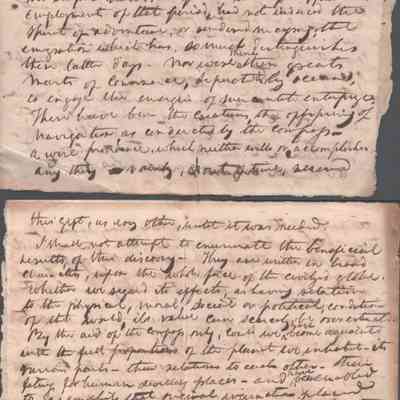 employment of that period, had not induced the
spirit of adventure, or rendered necessary, the
emigration which has, so much distinguished
these latter days. Nor were there great
marts of commerce,
to engage the energies of mercantile enterprize
These have been the creations, the offspring of
navigation as conducted by the compass
a wise providence, which neither wills nor accomplishes
any thing
this gift, as every other, until it was needed.
I shall not attempt to enumerate the beneficial
results of this discovery - They are written in broad
characters, upon the whole face of the civilized globe.
Whether we regard its effects, as having relation
to the physical, moral, social or political condition
of the world, its value can scarcely be overestimated
By the aid of the compass only, could we become acquainted
with the just proportions of the planet we inhabit - its
various parts - their relations to each other - their
fitness for human dwelling places - and